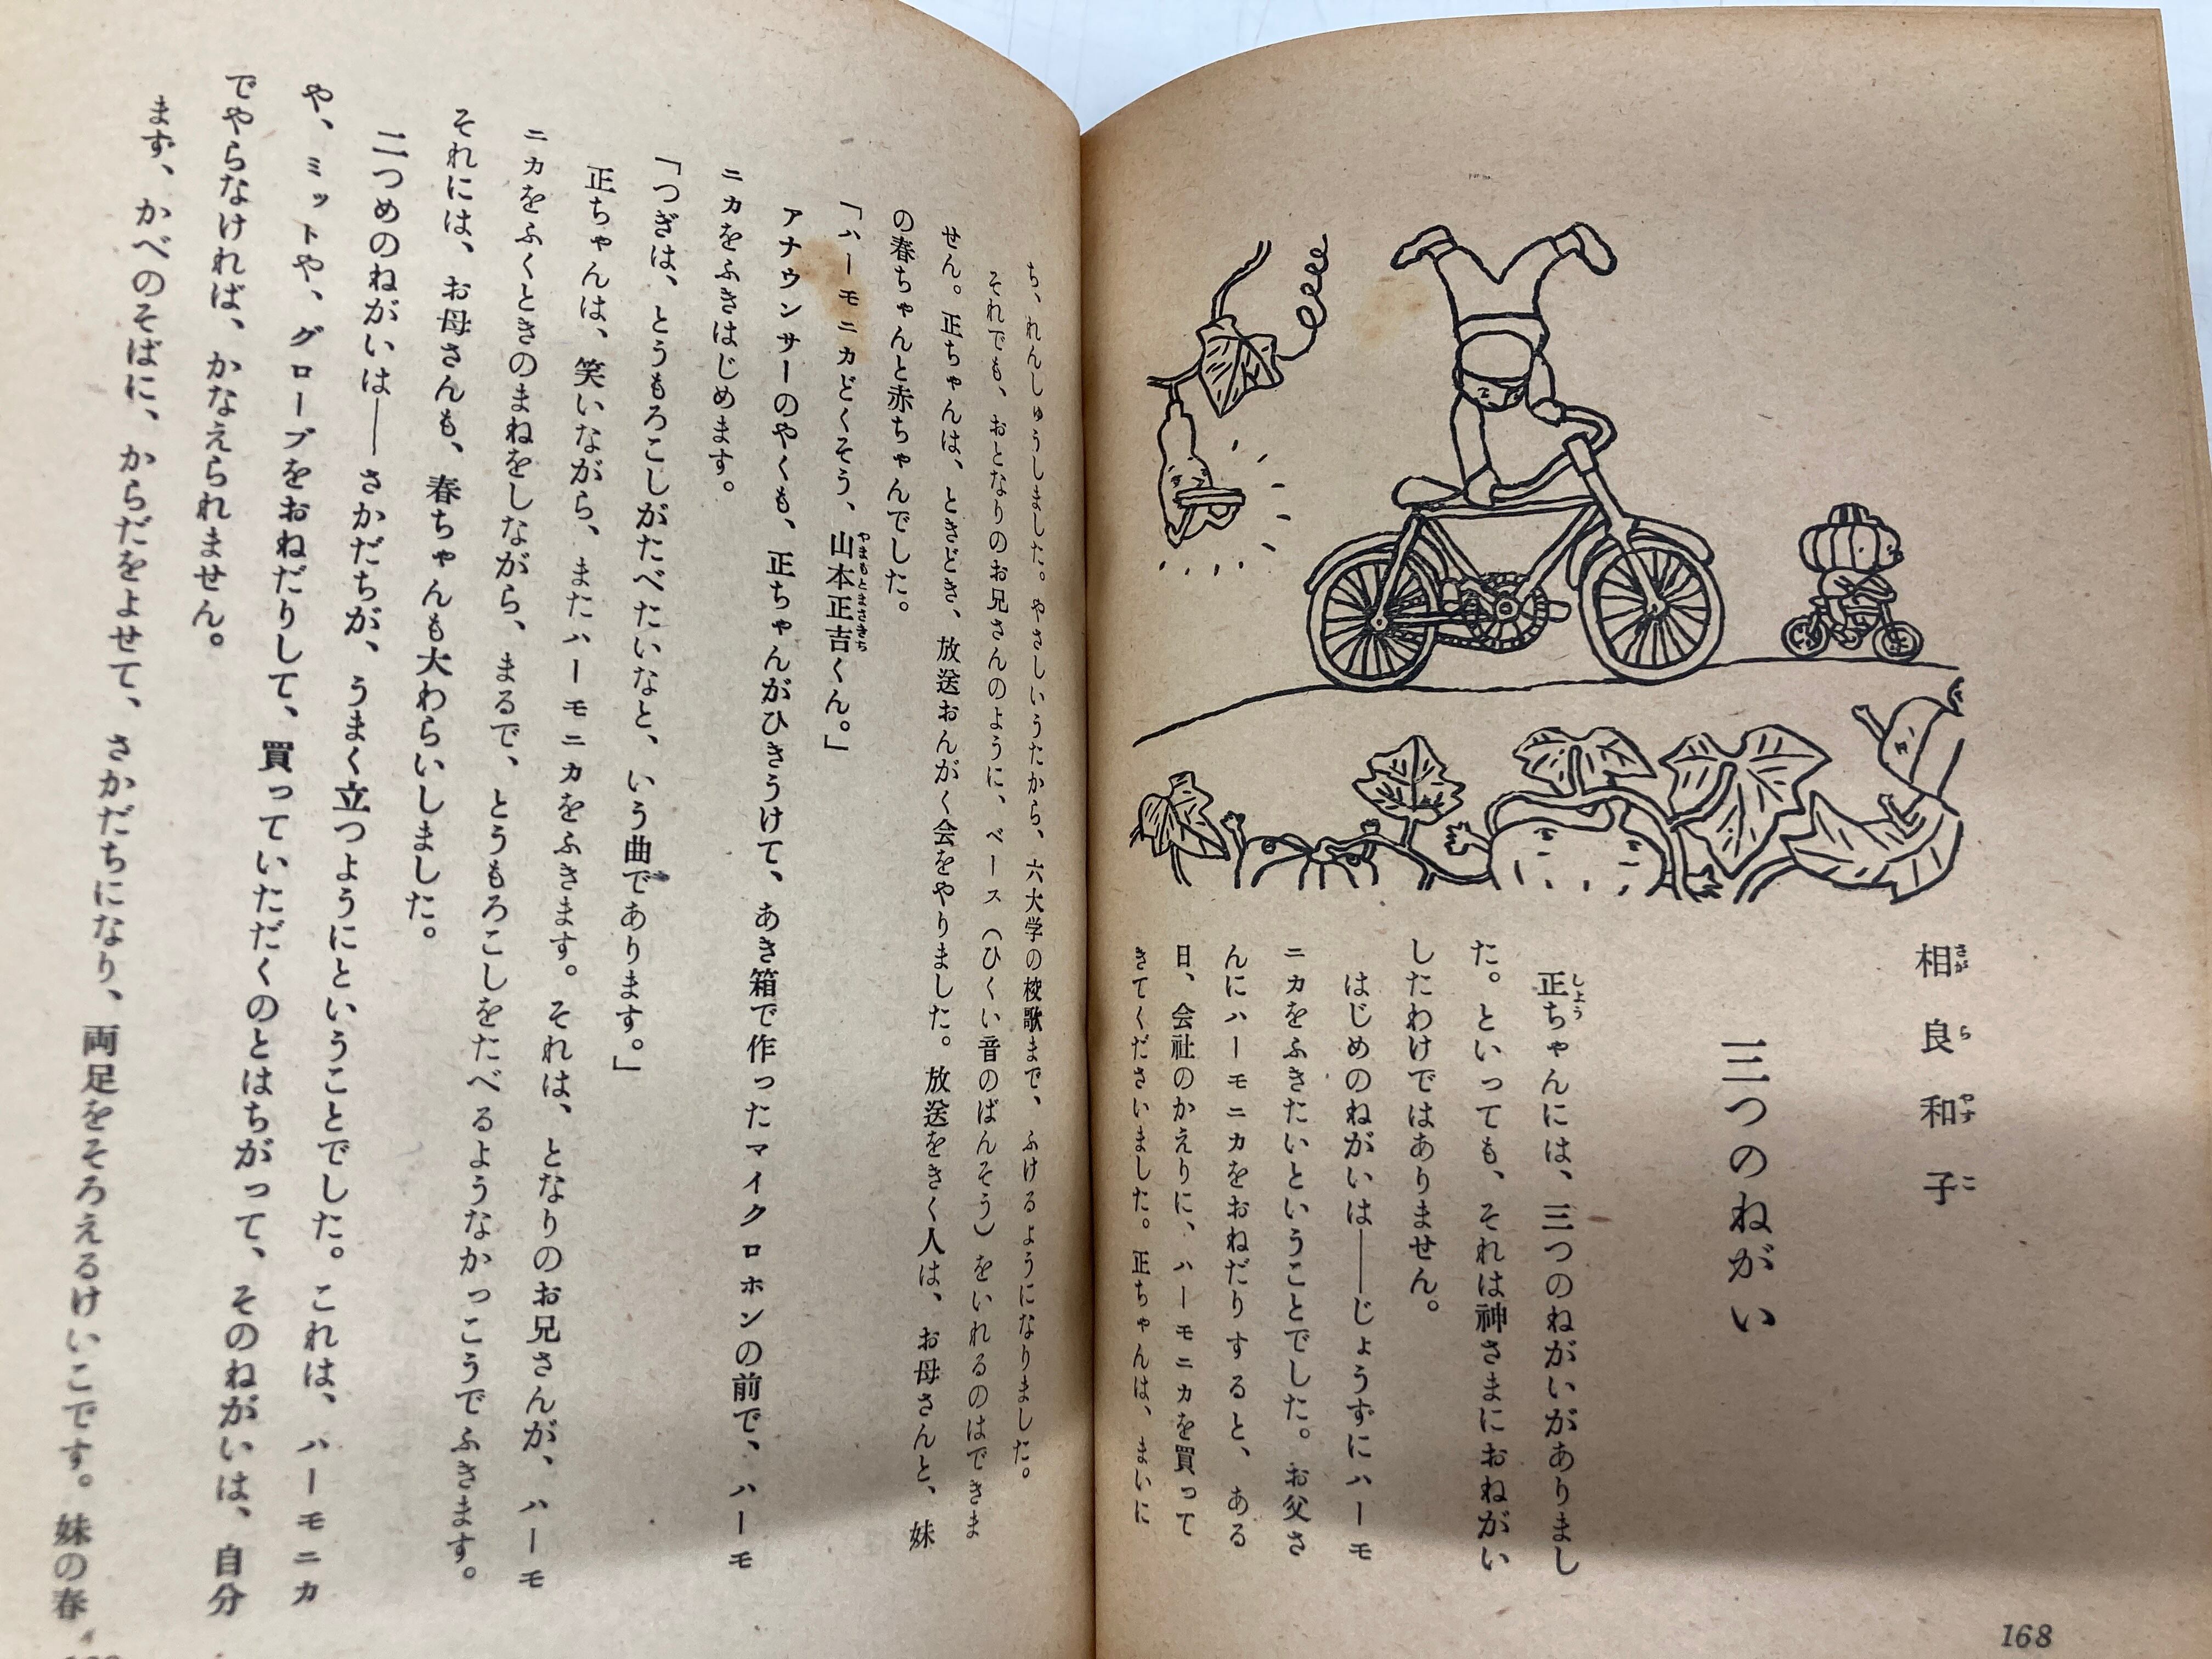 相良和子
さがらやすこ
三つのねがい
正ちゃんには、三つのねがいがありまし
しょう
た。といっても、それは神さまにおねがい
したわけではありません。
はじめのねがいは――じょうずにハーモ
ニカをふきたいということでした。お父さ
んにハーモニカをおねだりすると、ある
日、会社のかえりに、ハーモニカを買って
きてくださいました。正ちゃんは、まいに
168
ち、れんしゅうしました。やさしいうたから、六大学の校歌まで、ふけるようになりました。
それでも、おとなりのお兄さんのように、ベース（ひくい音のばんそう）をいれるのはできま
せん。正ちゃんは、ときどき、放送おんがく会をやりました。放送をきく人は、お母さんと、妹
の春ちゃんと赤ちゃんでした。
「ハーモニカどくそう、山本正吉くん。」
やまもとまさきち
アナウンサーのやくも、正ちゃんがひきうけて、あき箱で作ったマイクロホンの前で、ハーモ
ニカをふきはじめます。
「つぎは、とうもろこしがたべたいなと、いう曲であります。」
正ちゃんは、笑いながら、またハーモニカをふきます。それは、となりのお兄さんが、ハーモ
ニカをふくときのまねをしながら、まるで、とうもろこしをたべるようなかっこうでふきます。
それには、お母さんも、春ちゃんも大わらいしました。
二つめのねがいは――さかだちが、うまく立つようにということでした。これは、ハーモニカ
や、ミットや、グローブをおねだりして、買っていただくのとはちがって、そのねがいは、自分
でやらなければ、かなえられません。
まず、かべのそばに、からだをよせて、さかだちになり、両足をそろえるけいこです。妹の春